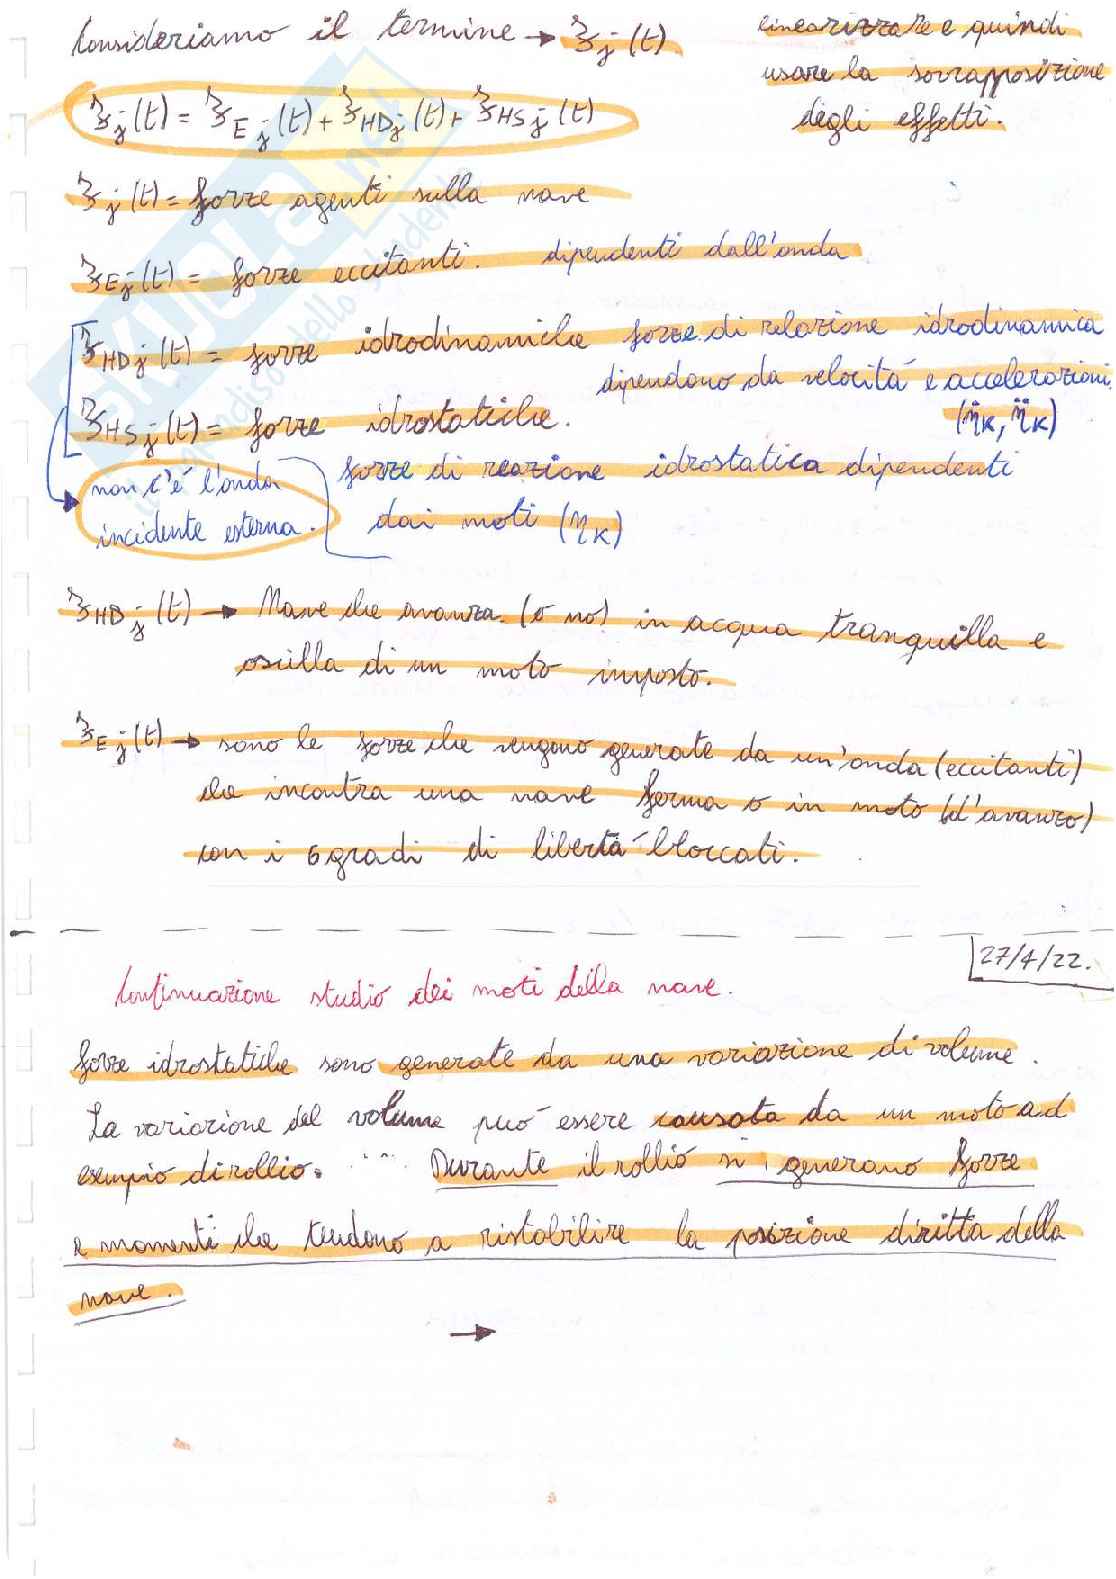 Consideriamo il termine → ℨj(t)
linearizzare e quindi
usare la sovrapposizione
degli effetti.
ℨj(t) = ℨEj(t) + ℨHDj(t) + ℨHSj(t)
ℨj(t) = forze agenti sulla nave
ℨEj(t) = forze eccitanti. dipendenti dall'onda
ℨHDj(t) = forze idrodinamiche forze di relazione idrodinamica
dipendono da velocitá e accelerazioni.
(η̇K, η̈K)
ℨHSj(t) = forze idrostatiche.
forze di reazione idrostatica dipendenti
dai moti (ηK)
non c'é l'onda
incidente esterna.
ℨHDj(t) → Nave che avanza (o no) in acqua tranquilla e
oscilla di un moto imposto.
ℨEj(t) → sono le forze che vengono generate da un'onda (eccitanti)
che incontra una nave ferma o in moto (d'avanzo)
con i 6 gradi di libertá bloccati.
27/4/22.
Continuazione studio dei moti della nave.
forze idrostatiche sono generate da una variazione di volume.
La variazione del volume puó essere causata da un moto ad
esempio di rollio. Durante il rollio si generano forze
e momenti che tendono a ristabilire la posizione diritta della
nave.
→
SKUOLA.net
il paradiso dello studente